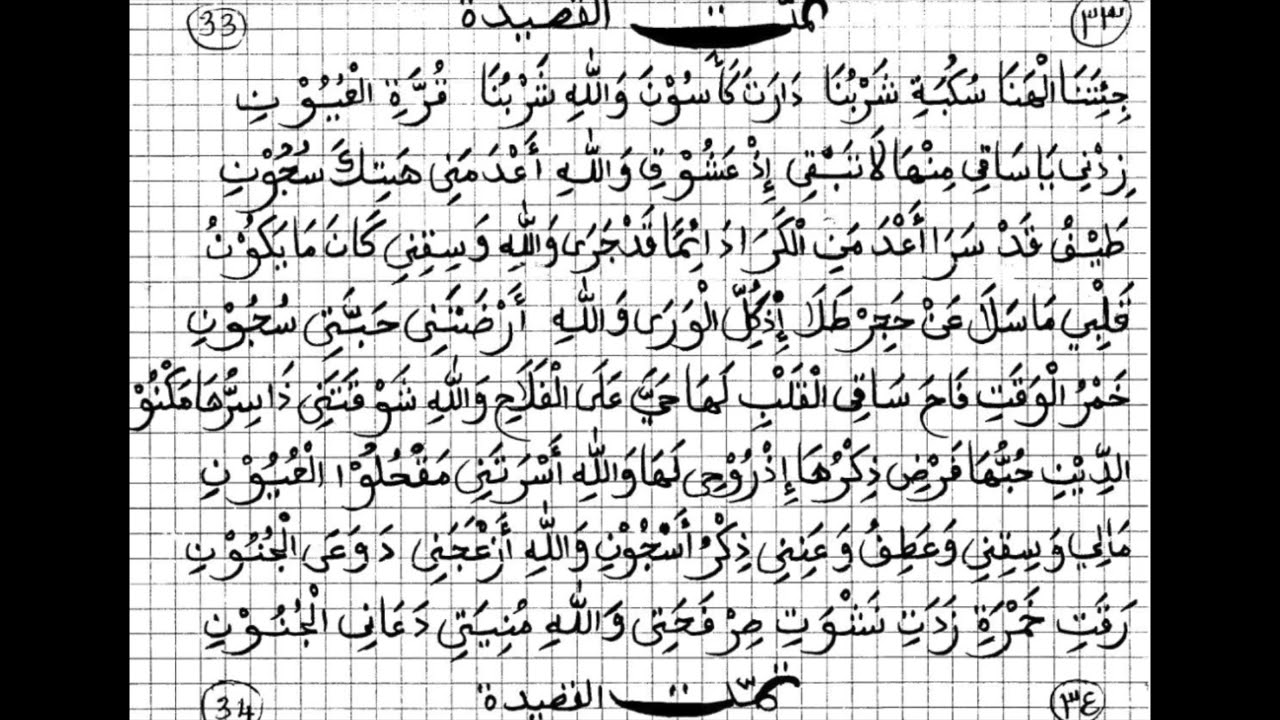 33 تمت القصيدة ٣٣
جِئْتَنَا الْهَنَا سُكْبَةِ شَرْبُنَا دَارَتَ كَأسُوْنَ وَاللهِ شَرْبُنَا قُرَّةِ الْعُيُوْنِ
زِدْنِي يَا سَاقِي مِنْهَا لَا تَبْقِي إِذْ عَشُوْقِ وَاللهِ أَعْدَمَنِي هَيْتِكَ سُجُوْنِ
طَيْفُ قَدْ سَرَا أَعْدَمَنِ الْكَرَا دَائِمًا قَدْ جَرَى وَاللهِ وَسِقِنِي كَانَ مَا يَكُوْنُ
قَلْبِي مَا سَلَا عَنْ حَجِرْ طَلَا إِذْ كُلِّ الْوَرَى وَاللهِ أَرْضَتْنِي حَبَّتِي سُجُوْنِ
خَمْرُ الْوَقَتِ فَاحَ سَاقِي الْقَلْبِ لَهَا حَيَّ عَلَى الْفَلَاحِ وَاللهِ شَوْقَتَنِي ذَا سِرُّهَا مَكْنُوْ
الدِّيْنِ حُبُّهَا فَرْضِ ذِكْرُهَا إِذْ رُوْحِى لَهَا وَاللهِ أَسْرَتَنِي مَقْحُلُوْا الْعُيُوْنِ
مَالِي وَسِقِنِي وَعَطِفُ وَعَنِنِي ذِكْرُ أَسْجُوْنِ وَاللهِ أَزْعَجَنِي دَوَعَى الْجُنُوْنِ
رَقَتِ خَمْرَةِ زَدَتِ نَشْوَتِ صِرْفَحَتِى وَاللهِ مُنِيَتِي دَعَانِي الْجُنُوْنِ
34 تمت القصيدة ٣٤